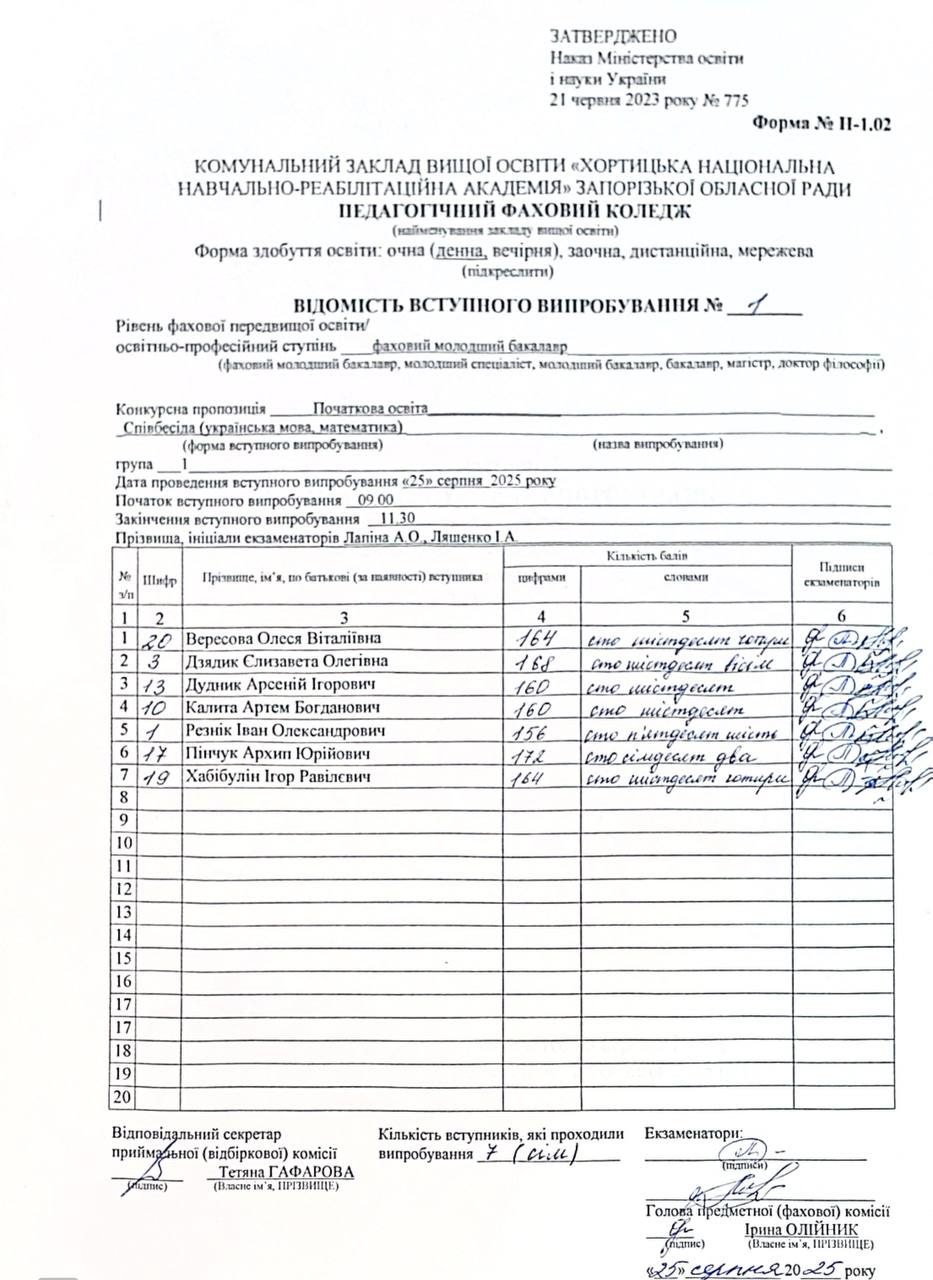 ЗАТВЕРДЖЕНО
Наказ Міністерства освіти
і науки України
21 червня 2023 року № 775
Форма № П-1.02
КОМУНАЛЬНИЙ ЗАКЛАД ВИЩОЇ ОСВІТИ «ХОРТИЦЬКА НАЦІОНАЛЬНА
НАВЧАЛЬНО-РЕАБІЛІТАЦІЙНА АКАДЕМІЯ» ЗАПОРІЗЬКОЇ ОБЛАСНОЇ РАДИ
ПЕДАГОГІЧНИЙ ФАХОВИЙ КОЛЕДЖ
(найменування закладу вищої освіти)
Форма здобуття освіти: очна (денна, вечірня), заочна, дистанційна, мережева
(підкреслити)
ВІДОМІСТЬ ВСТУПНОГО ВИПРОБУВАННЯ № 1
Рівень фахової передвищої освіти/
освітньо-професійний ступінь фаховий молодший бакалавр
(фаховий молодший бакалавр, молодший спеціаліст, молодший бакалавр, бакалавр, магістр, доктор філософії)
Конкурсна пропозиція Початкова освіта
Співбесіда (українська мова, математика) ,
(форма вступного випробування) (назва випробування)
група 1
Дата проведення вступного випробування «25» серпня 2025 року
Початок вступного випробування 09.00
Закінчення вступного випробування 11.30
Прізвища, ініціали екзаменаторів Лапіна А.О., Ляшенко І.А.
№ з/п Шифр Прізвище, ім’я, по батькові (за наявності) вступника Кількість балів цифрами словами Підписи екзаменаторів
1 2 3 4 5 6
1 20 Вересова Олеся Віталіївна 164 сто шістдесят чотири
2 3 Дзядик Єлизавета Олегівна 168 сто шістдесят вісім
3 13 Дудник Арсеній Ігорович 160 сто шістдесят
4 10 Калита Артем Богданович 160 сто шістдесят
5 1 Резнік Іван Олександрович 156 сто п'ятдесят шість
6 17 Пінчук Архип Юрійович 172 сто сімдесят два
7 19 Хабібулін Ігор Равілєвич 164 сто шістдесят чотири
8
9
10
11
12
13
14
15
16
17
17
18
19
20
Відповідальний секретар
приймальної (відбіркової) комісії
Тетяна ГАФАРОВА
(підпис) (Власне ім’я, ПРІЗВИЩЕ)
Кількість вступників, які проходили
випробування 7 (сім)
Екзаменатори:
(підписи)
Голова предметної (фахової) комісії
Ірина ОЛІЙНИК
(підпис) (Власне ім’я, ПРІЗВИЩЕ)
«25» серпня 2025 року